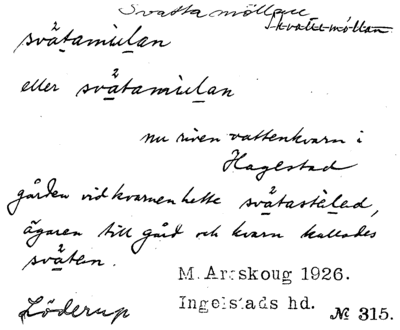 Svatta möllan
Skvattemöllan
svätamiulan
eller svätamiulan
nu riven vattenkvarn i
Hagestad
gården vid kvarnen hette svätastäled,
ägaren till gård och kvarn kallades
sväten.
M. Areskoug 1926.
Löderup Ingelstads hd. № 315.